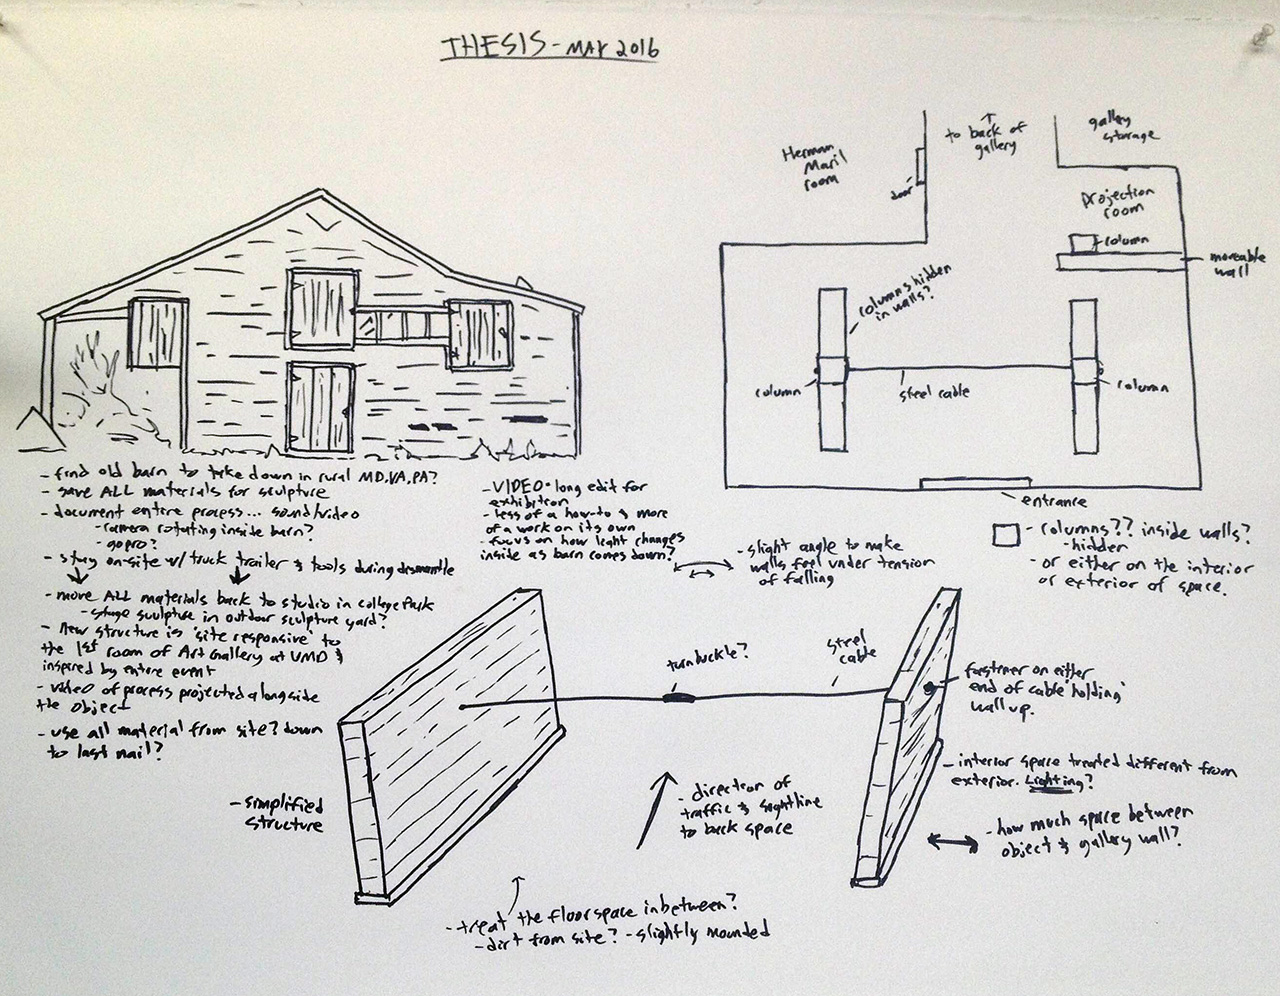 THESIS - MAY 2016
Herman
Maril
room
door
to back of
gallery
gallery
storage
projection
room
column
moveable
wall
columns hidden
in walls?
column
steel cable
column
entrance
- columns?? inside walls?
- hidden
- or either on the interior
or exterior of space.
- find old barn to take down in rural MD, VA, PA?
- save ALL materials for sculpture
- document entire process... sound/video
- camera rotating inside barn?
- gopro?
- stay on-site w/ truck trailer & tools during dismantle
- move ALL materials back to studio in College Park
- stage sculpture in outdoor sculpture yard?
- new structure is 'site responsive' to
the 1st room of Art Gallery at UMD &
inspired by entire event
- video of process projected alongside
the object
- use all material from site? down
to last nail?
- VIDEO - long edit for
exhibition
- less of a how-to & more
of a work on its own
- focus on how light changes
inside as barn comes down?
- slight angle to make
walls feel under tension
of falling
turnbuckle?
steel
cable
fastener on either
end of cable 'holding'
wall up.
- interior space treated different from
exterior. Lighting?
- how much space between
object & gallery wall?
- simplified
structure
- direction of
traffic & sightline
to back space
- treat the floorspace in between?
- dirt from site? - slightly mounded